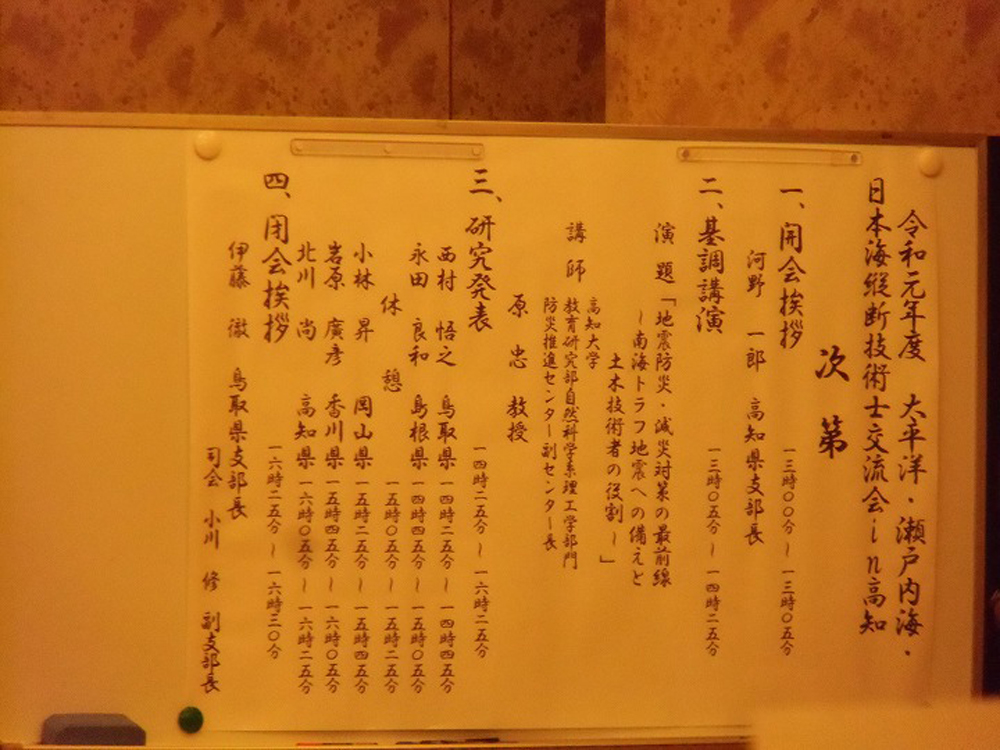 令和元年度　太平洋・瀬戸内海・
日本海縦断技術士交流会in高知
次　第
一、開会挨拶　一三時〇〇分～一三時〇五分
河野　一郎　高知県支部長
二、基調講演　一三時〇五分～一四時二五分
演題「地震防災・減災対策の最前線
～南海トラフ地震への備えと
土木技術者の役割～」
講師　高知大学
教育研究部自然科学系理工学部門
防災推進センター副センター長
原　忠　教授
三、研究発表　一四時二五分～一六時二五分
西村　悟之　鳥取県　一四時二五分～一四時四五分
永田　良和　島根県　一四時四五分～一五時〇五分
休　憩　一五時〇五分～一五時二五分
小林　昇　岡山県　一五時二五分～一五時四五分
岩原　廣彦　香川県　一五時四五分～一六時〇五分
北川　尚　高知県　一六時〇五分～一六時二五分
四、閉会挨拶　一六時二五分～一六時三〇分
伊藤　徹　鳥取県支部長
司会　小川　修　副支部長